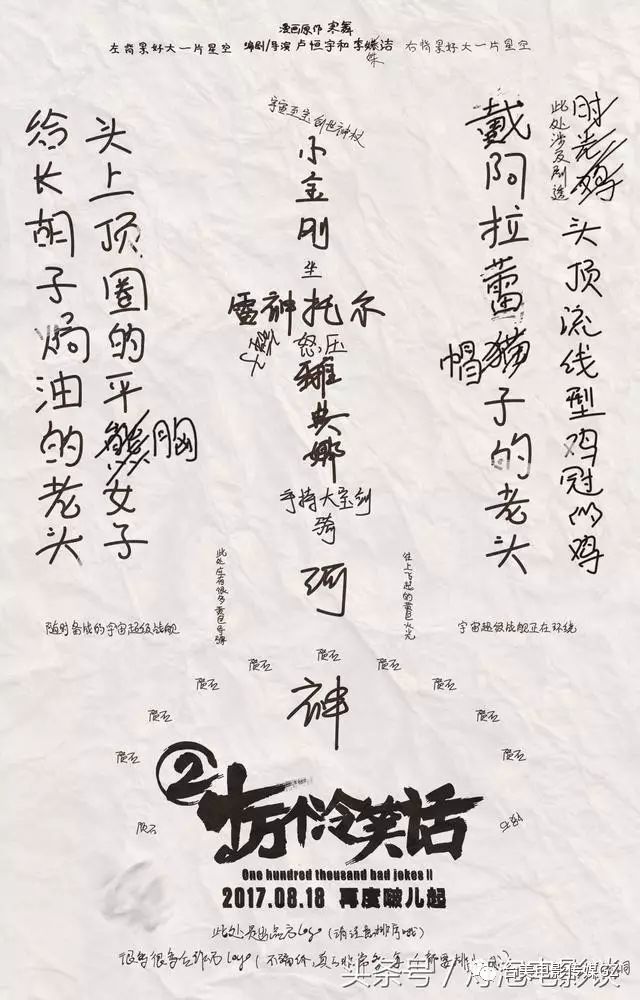 漫画原作 寒舞
左背景好大一片星空 编剧/导演 卢恒宇和李姝洁 右背景好大一片星空
时光鸡
此处涉及剧透
头顶流线型鸡冠的鸡
戴阿拉蕾猫子的老头
帽
宇宙至宝创世神杖
小金刚
坐
雷神托尔
怒压
雅典娜
手持大宝剑
骑
河
神
头上顶圈的平胸女子
给长胡子焗油的老头
往上飞起的黄色水光
随时备战的宇宙超级战舰
宇宙超级战舰正在环绕
陨石
陨石
陨石
陨石
陨石
陨石
陨石
陨石
陨石
陨石
陨石
陨石
2
十万个冷笑话
One hundred thousand bad jokes II
2017.08.18 再度啵儿起
此处是出品方logo(请注意排序哦)
很多很多合作方logo
头条号
海美电影传媒G2